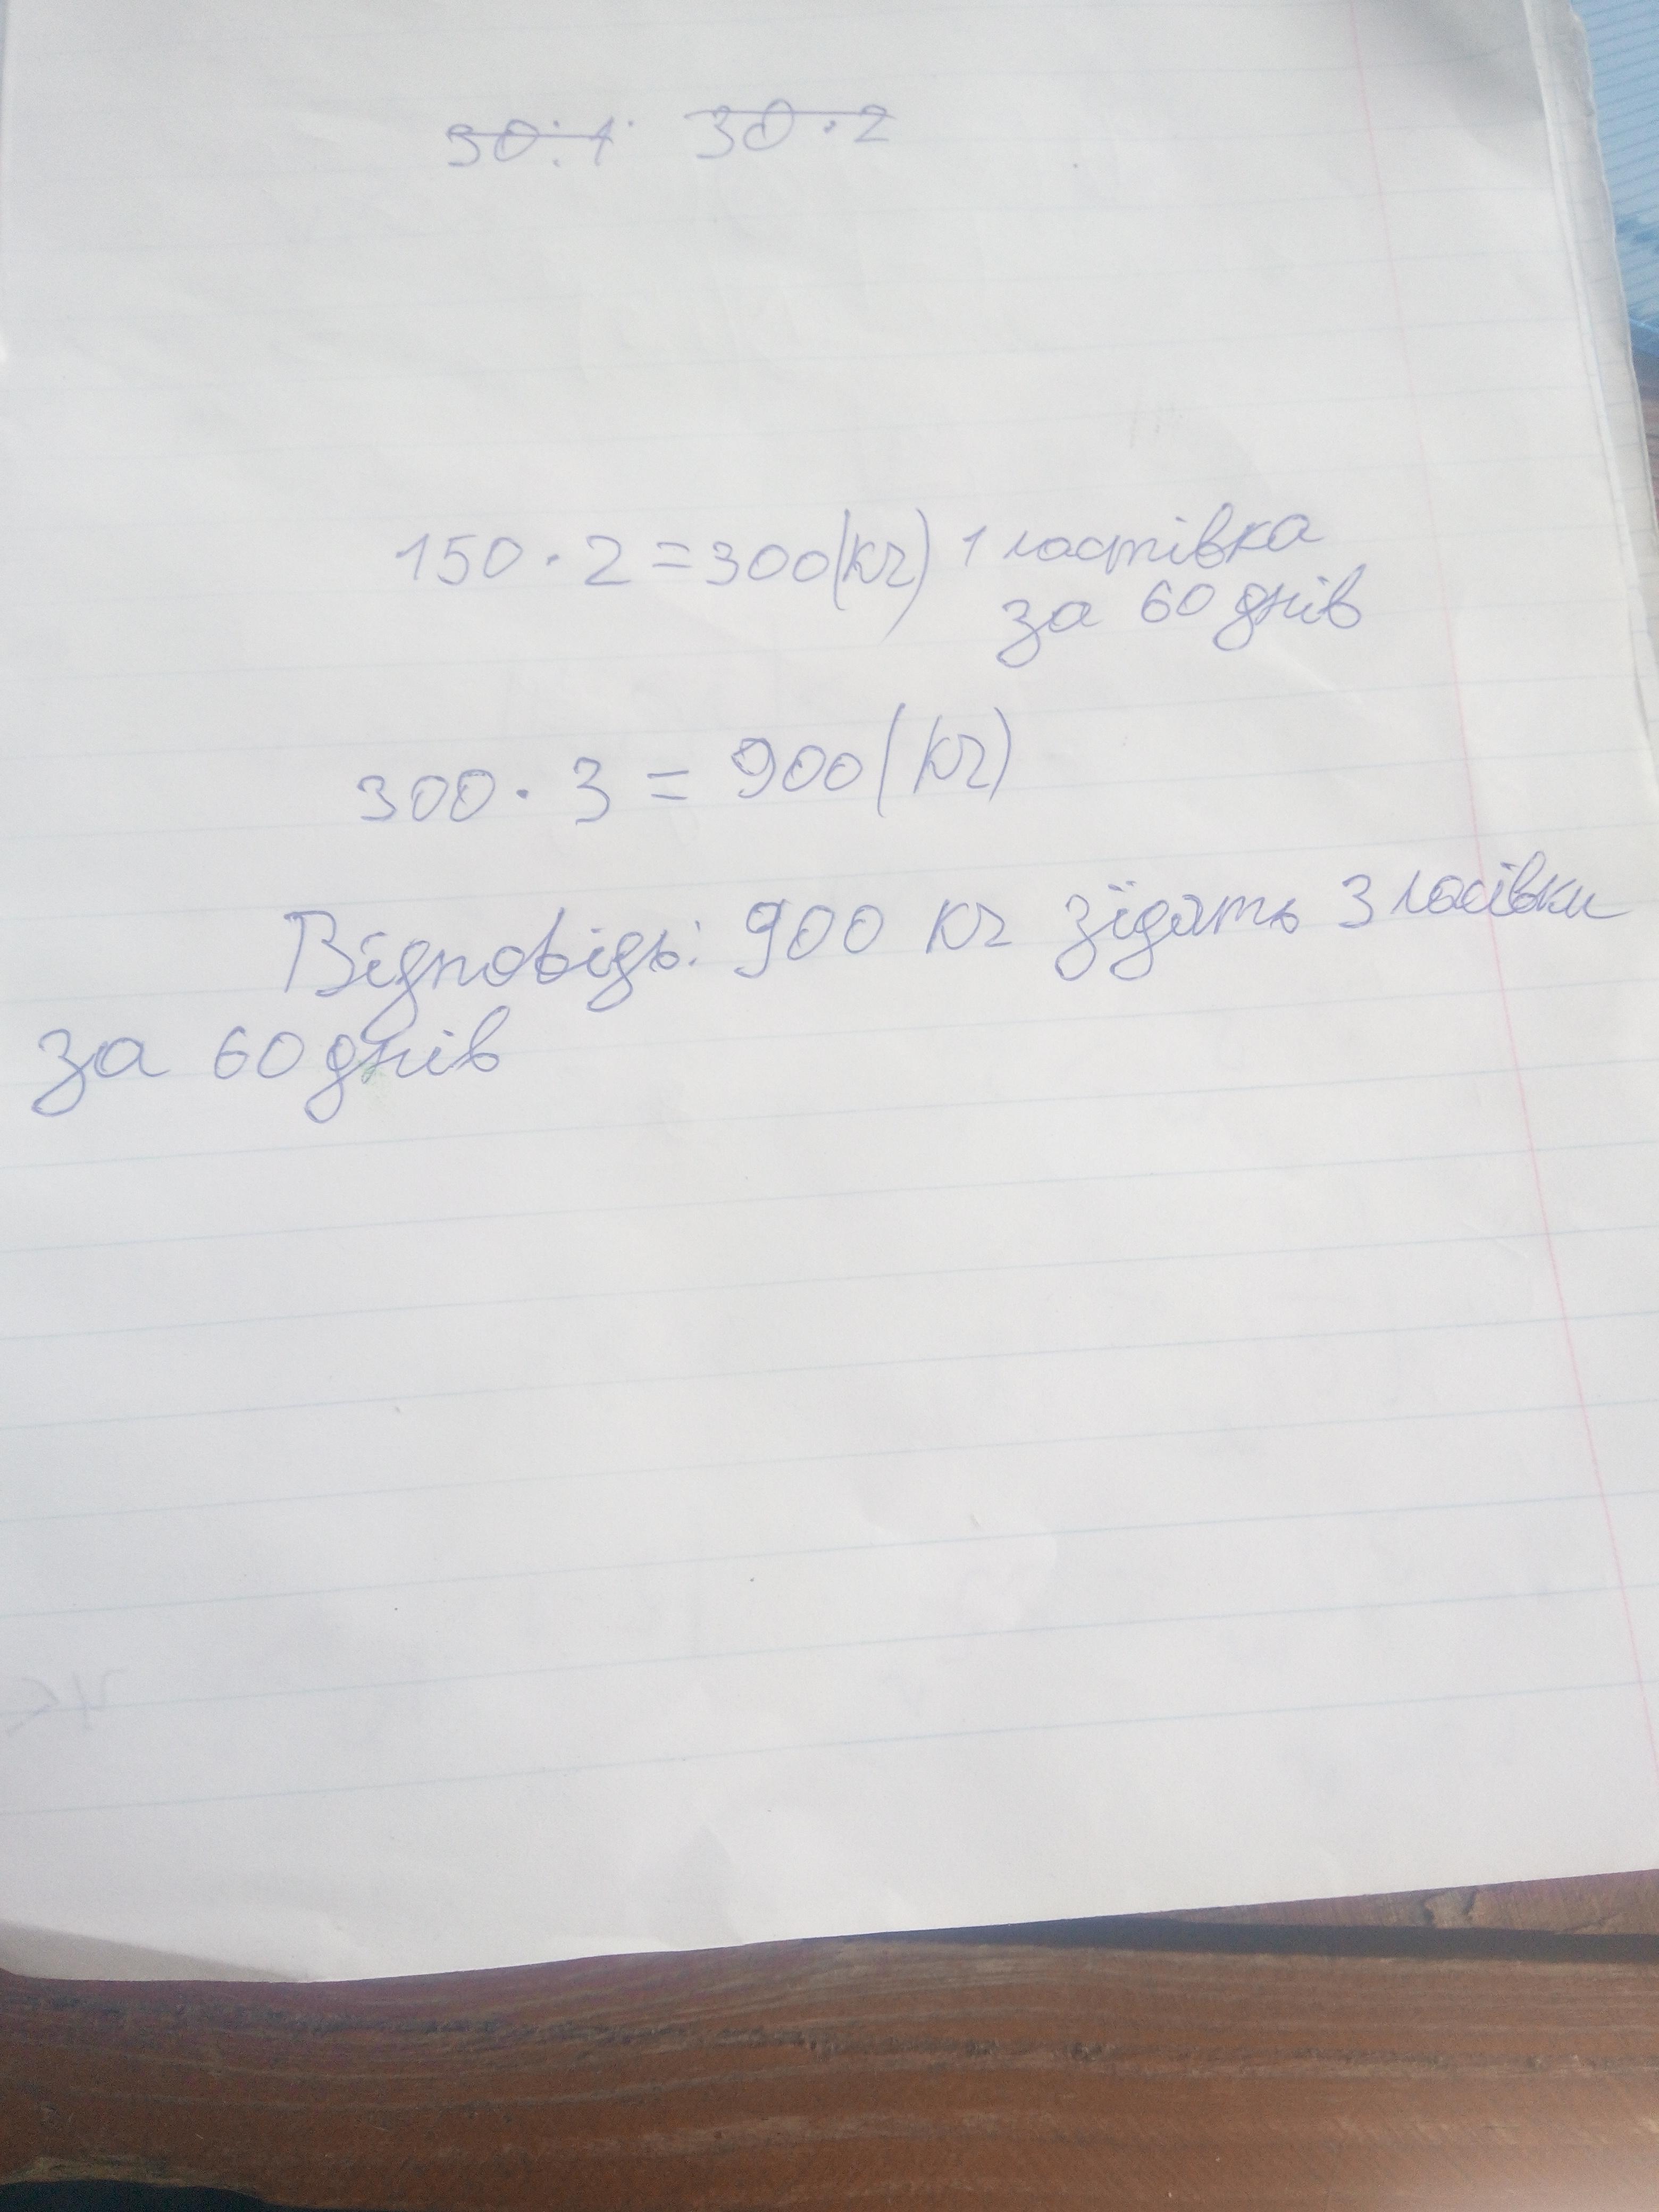 30:1 30·2
150·2=300(кг) 1 ластівка
за 60 днів
300·3=900(кг)
Відповідь: 900 кг зїдять 3 ласівки
за 60 днів